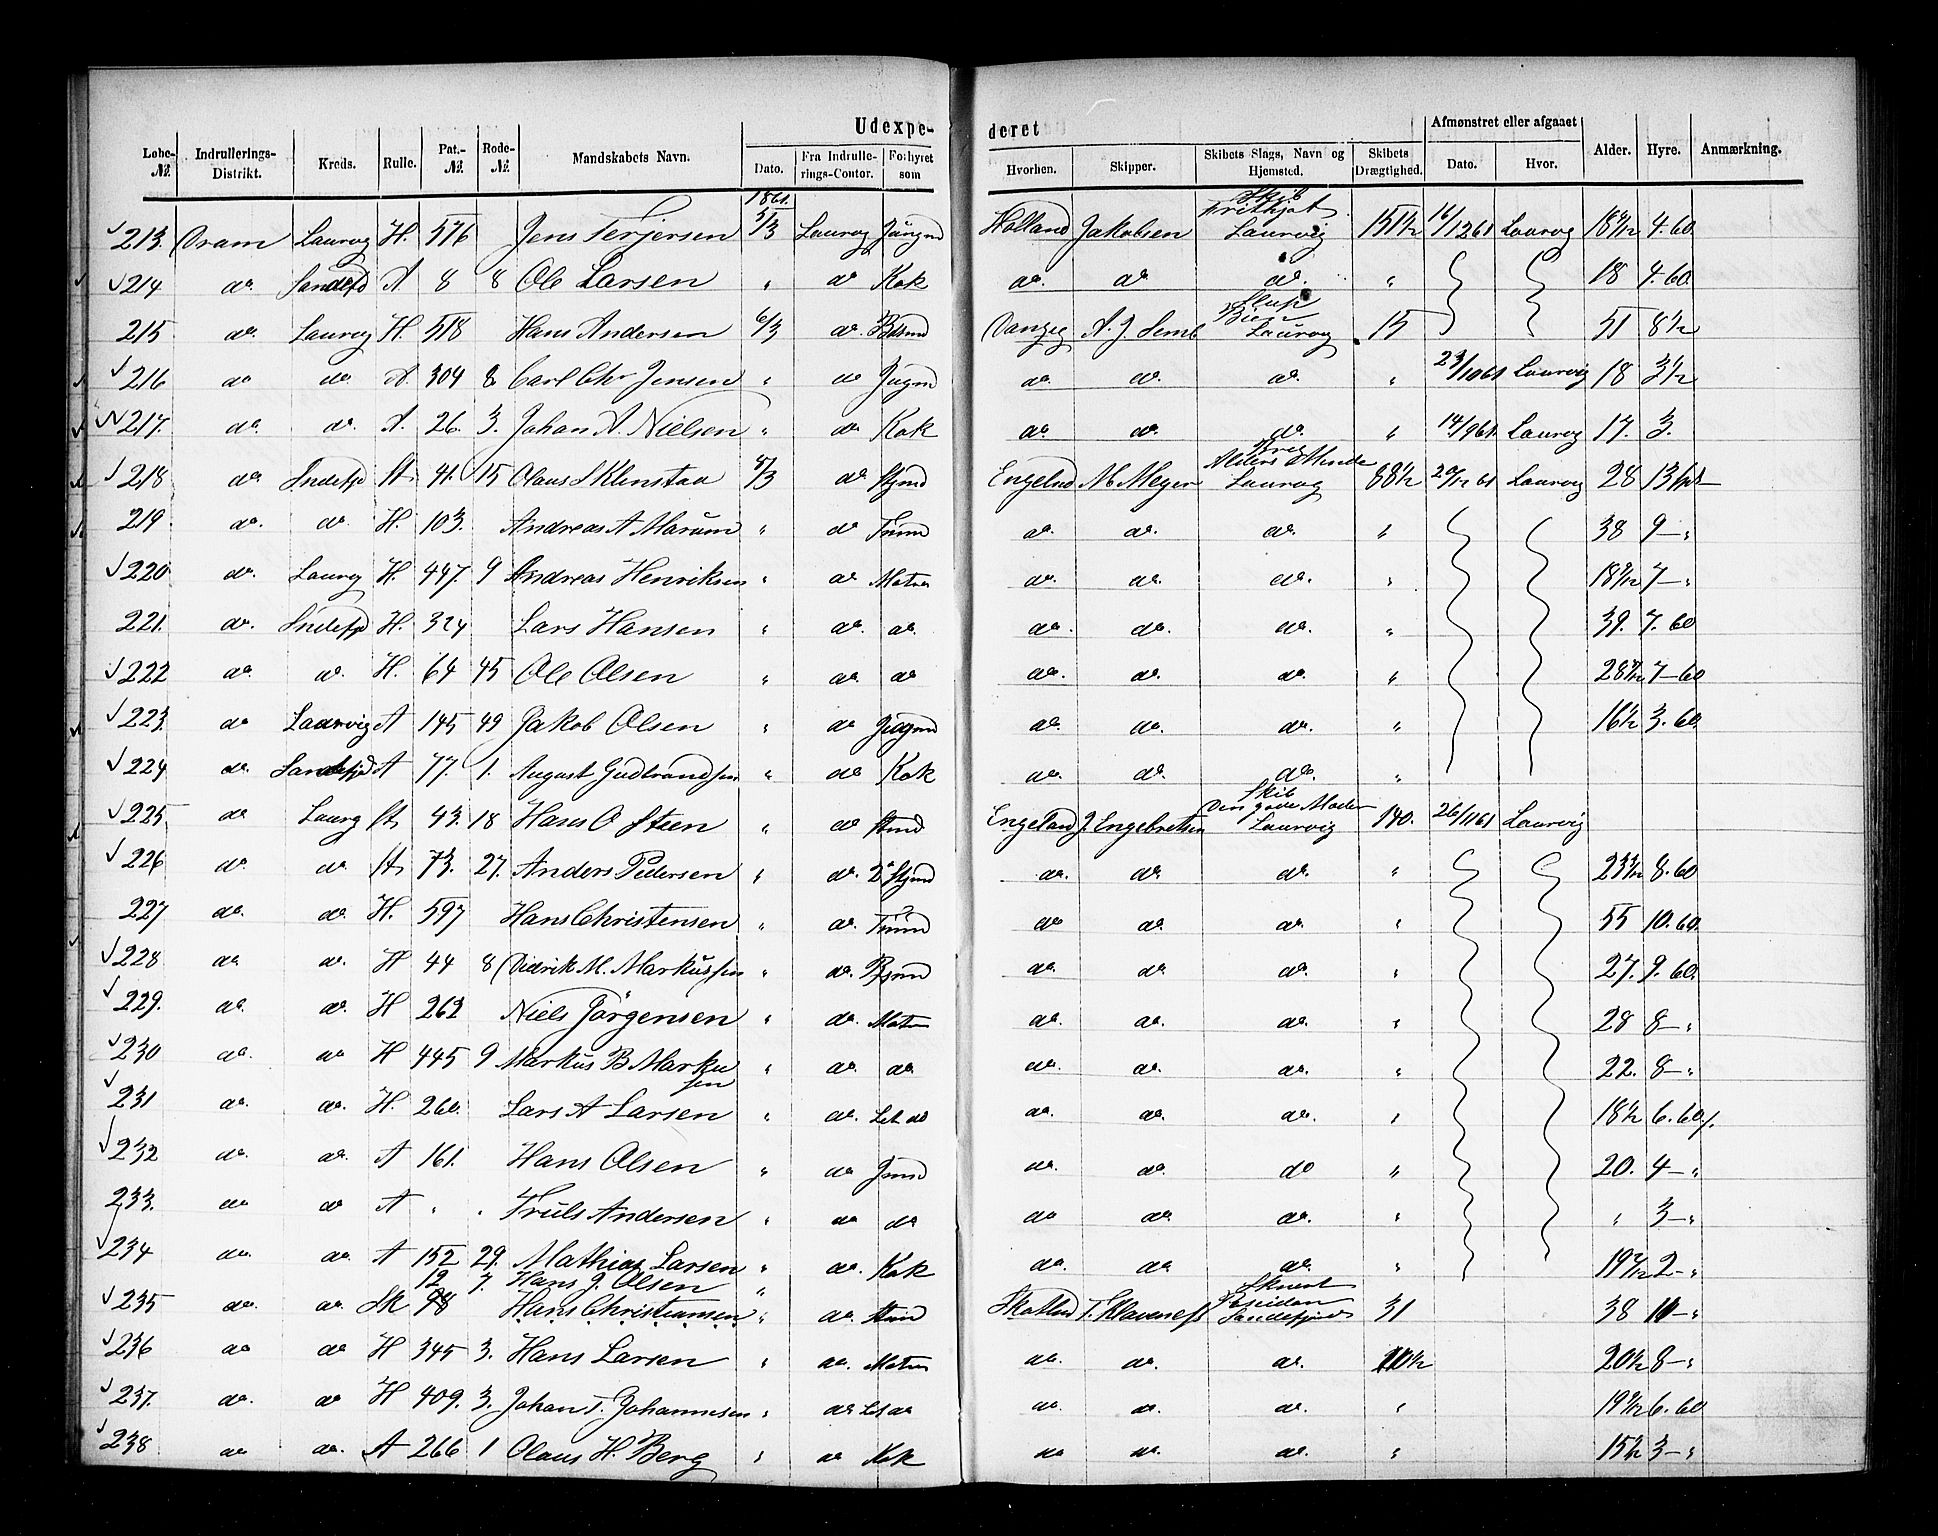 Udexpe- deret
Løbe-№. Indrullerings-Distrikt. Kreds. Rulle. Pat.-№. Rode-№. Mandskabets Navn. Dato. Fra Indrullerings-Contor. Forhyret som Hvorhen. Skipper. Skibets Slags, Navn og Hjemsted. Skibets Drægtighed. Afmønstret eller afgaaet Dato. Hvor. Alder. Hyre. Anmærkning.
1861.
213. Dram Laurvg H. 576 Jens Terjersen 5/3 Laurvg Jungmd Holland Jakobsen Skib Frithjof Laurvig 151½ 16/12 61 Laurvg 4.60
214 do Sandefd A 8 8 Ole Larsen " do Kok do. do do. " 18 4.60
215 do. Laurvg H. 518 Hans Andersen 6/3 do. Danzig A. J. Semb Slup Bien Laurvg 15 51 8½
216 do do. A. 304 8 Carl Chr Jensen " do Jugmd do. do. do. " 23/10 61 Laurvig 18 3½
217. do. do. A. 26. 3. Johan A. Nielsen " do Kok do. do. do. " 14/9 61. Laurvg 17. 3.
218 do. Sndefjd St. 41. 15 Olaus S Klenstad 8/3 do Stjmd Engelnd M Meyer Brig Alders Minde Laurvg 88½ 20/12 61 Laurvg 28 13
219. do. do. H. 103. Andreas A Marum " do Tmmd do. do. do. " 38 9-"
220 do. Laurvg H. 447. 9 Andreas Henriksen " do Matrs do. do. do. " 7-"
221. do. Sndefjd H. 324 Lars Hansen " do. do. do. do. do. " 39. 7.60
222 do do. H. 64 45 Ole Olsen " do. do do. do. do. " 7-60
223. do Laurvig A 145 49 Jakob Olsen " do Jugmd do. do. do. " 16½ 3.60.
224 do. Sandefjd A 77. 1. August Gudbrandsen " do Kok do. do. do. "
225. do Laurg St. 43. 18 Hans O Steen " do Stmd Engeland J. Engebretsen Skib Den gode Moder Laurvig 140. 26/11 61 Laurvig
226 do do St. 73. 27. Anders Pedersen " do. 2d Stjmd do. do. do. " 8.60
227 do. do H. 597 Hans Christensen " do. Tmmd do do. do. " 55 10.60.
228 do. do. H 44 8 Didrik M. Markussen " do. do. do. do. " 27. 9.60.
229. do. do. H 262 Niels Jörgensen " do. Matrs do. do. do. " 28 8-"
230 do. do H 445 9 Markus B Markusen " do. do do. do. do. " 22. 8-"
231 do. do. H. 260. Lars A Larsen " do. Let do do. do. do. " 18½ 6.60
232 do. do. A 161. Hans Olsen " do Jmd do. do. do " 20. 4-"
233. do do A " " Truls Andersen " do do do do do. " " 3-"
234 do. do A 152 29. Mathias Larsen " do. Kok do. do. do. " 2-"
12 7. Hans J. Olsen "
235 do. do. Sk 48 Hans Christiansen " do. Stmd Skotlnd T. Klaveness Skonert Poseidon Sandefjord 31 38 11-"
236 do do H 345 3. Hans Larsen " do. Matrs do. do. do. 20½ 8-"
237. do. do H 409. 3. Johan T. Johannesen " do Let do do. do. do. " 6.60
238 do do. A 266 1 Olaus H. Berg " do Kok do do. do. " 15½ 3-"